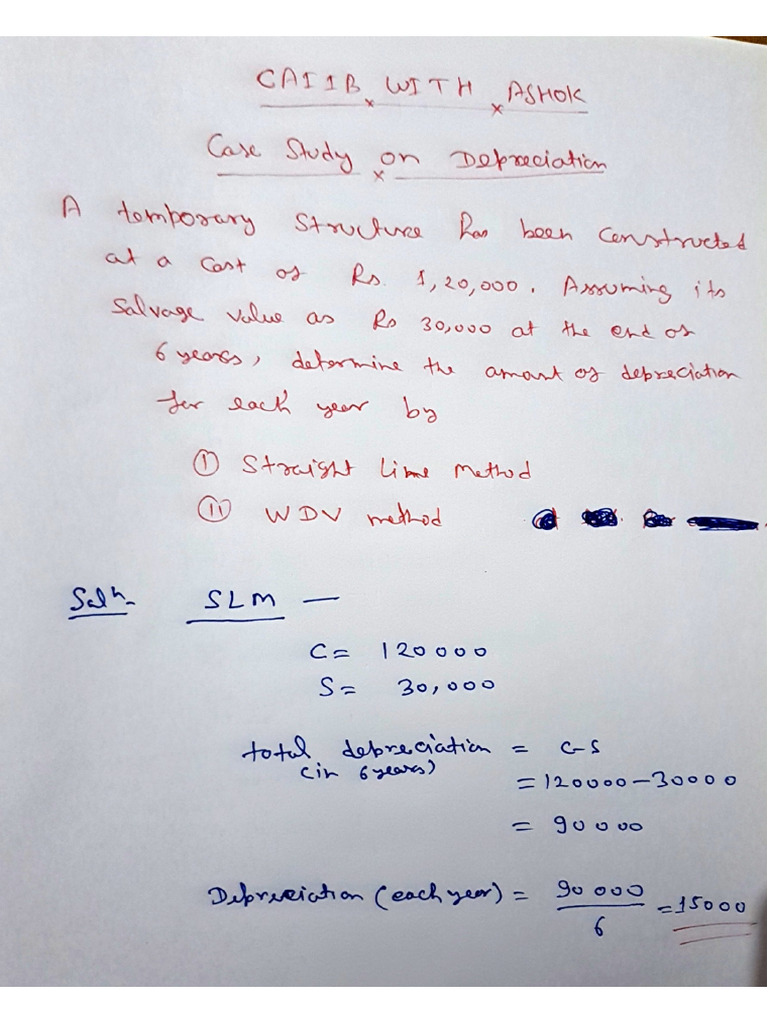 CAIIB WITH ASHOK
Case Study on Depreciation
A temporary structure has been constructed
at a cost of Rs. 1,20,000. Assuming its
salvage value as Rs 30,000 at the end of
6 years, determine the amount of depreciation
for each year by
(i) Straight Line Method
(ii) WDV method
Solⁿ- SLM —
C = 120000
S = 30,000
total depreciation = C-S
(in 6 years)
= 120000 - 30000
= 90000
Depreciation (each year) = 90000 / 6 = 15000